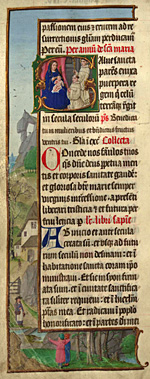 passionem eius & crucem ad re
surrectionis gloriam perducam̄
Per eūn. Per annū de sc̄a maria
Alue sancta
parēs enixa
puerpera re
gem qui celū
terrāq; regit
in secula seculorū ps Benedicta
tu in mulieribus et bn̄dictus fructus
ventris tui. Gl̄a
Collecta
Concede nos famulos tuos
qs dn̄e deus ppetua men
tis et corporis sanitate gaude
re et gloriosa btē marie semper
virginis intercessione a presen
ti liberari tristicia et eterna per
frui leticia. p
le libri sapie
Ab inicio et ante secula
creata sū et usq; ad futurum
seculum non desinam et in
habitatione sancta coram ipso
ministravi Et sic in syon
firmata sū et in civitate sancti
ficata similiter requievi et in hierlm
ptās mea Et radicavi in populo
honorificato et in partes dei mei